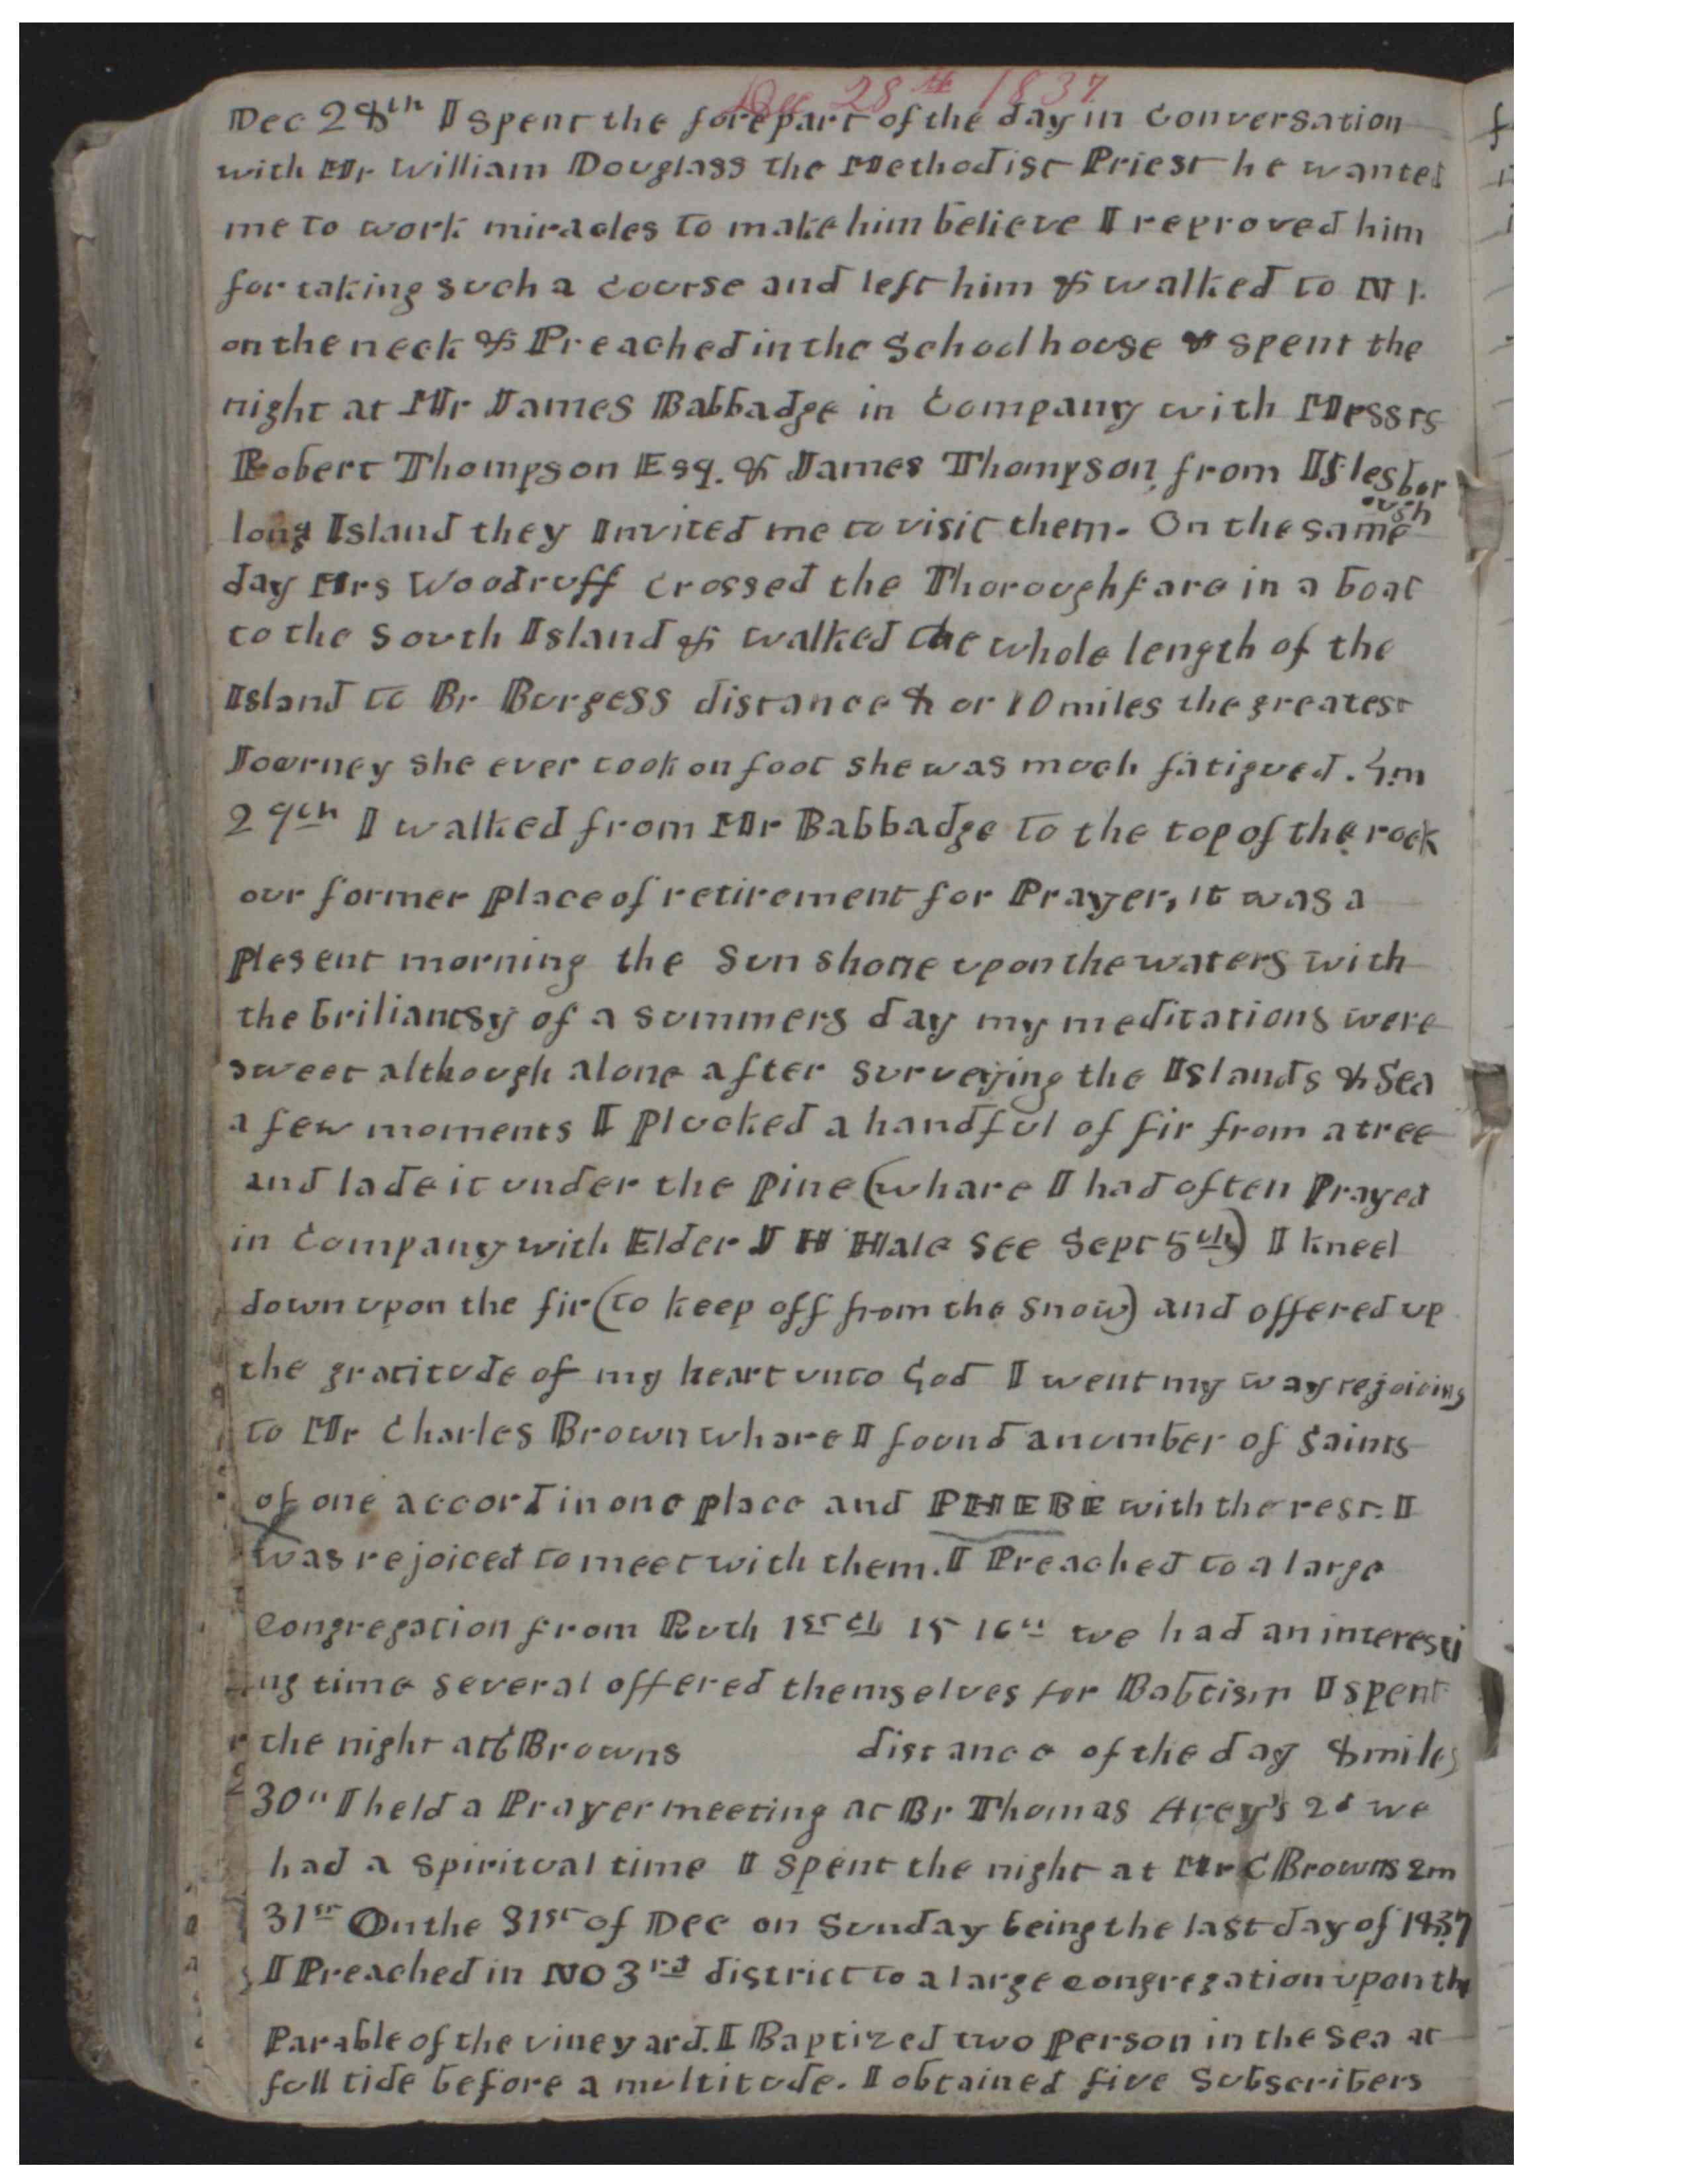 Dec 28th 1837
Dec 28th I spent the forepart of the day in Conversation
with Mr William Douglass the Methodist Priest he wanted
me to work miracles to make him believe I reproved him
for taking such a course and left him & walked to N 1.
on the neck & Preached in the School house & spent the
night at Mr James Babbadge in Company with Messrs
Robert Thompson Esq. & James Thompson, from Islesbor
ough
long Island they Invited me to visit them. On the same
day Mrs Woodruff crossed the Thoroughfare in a boat
to the South Island & walked the whole length of the
Island to Br Burgess distance 8 or 10 miles the greatest
Journey she ever took on foot she was much fatigued. 4m
29th I walked from Mr Babbadge to the top of the rock
our former place of retirement for Prayer, it was a
plesent morning the Sun shone upon the waters with
the briliantsy of a summers day my meditations were
sweet although alone after surveying the Islands & Sea
a few moments I plucked a handful of fir from a tree
and lade it under the pine (whare I had often Prayed
in Company with Elder J H Hale See Sept 5th) I kneel
down upon the fir (to keep off from the snow) and offered up
the gratitude of my heart unto God I went my way rejoicing
to Mr Charles Brown whare I found a number of Saints
of one accord in one place and PHEBE with the rest. I
was rejoiced to meet with them. I Preached to a large
Congregation from Ruth 1st ch 15 16" we had an interesti
ng time several offered themselves for Babtism I spent
the night at C Browns distance of the day 8 miles
30" I held a Prayer meeting at Br Thomas Arey's 2d we
had a spiritual time I spent the night at Mr C Browns 2m
31st On the 31st of Dec on Sunday being the last day of 1837
I Preached in NO 3rd district to a large congregation upon the
Parable of the vineyard. I Baptized two person in the Sea at
full tide before a multitude. I obtained five Subscribers